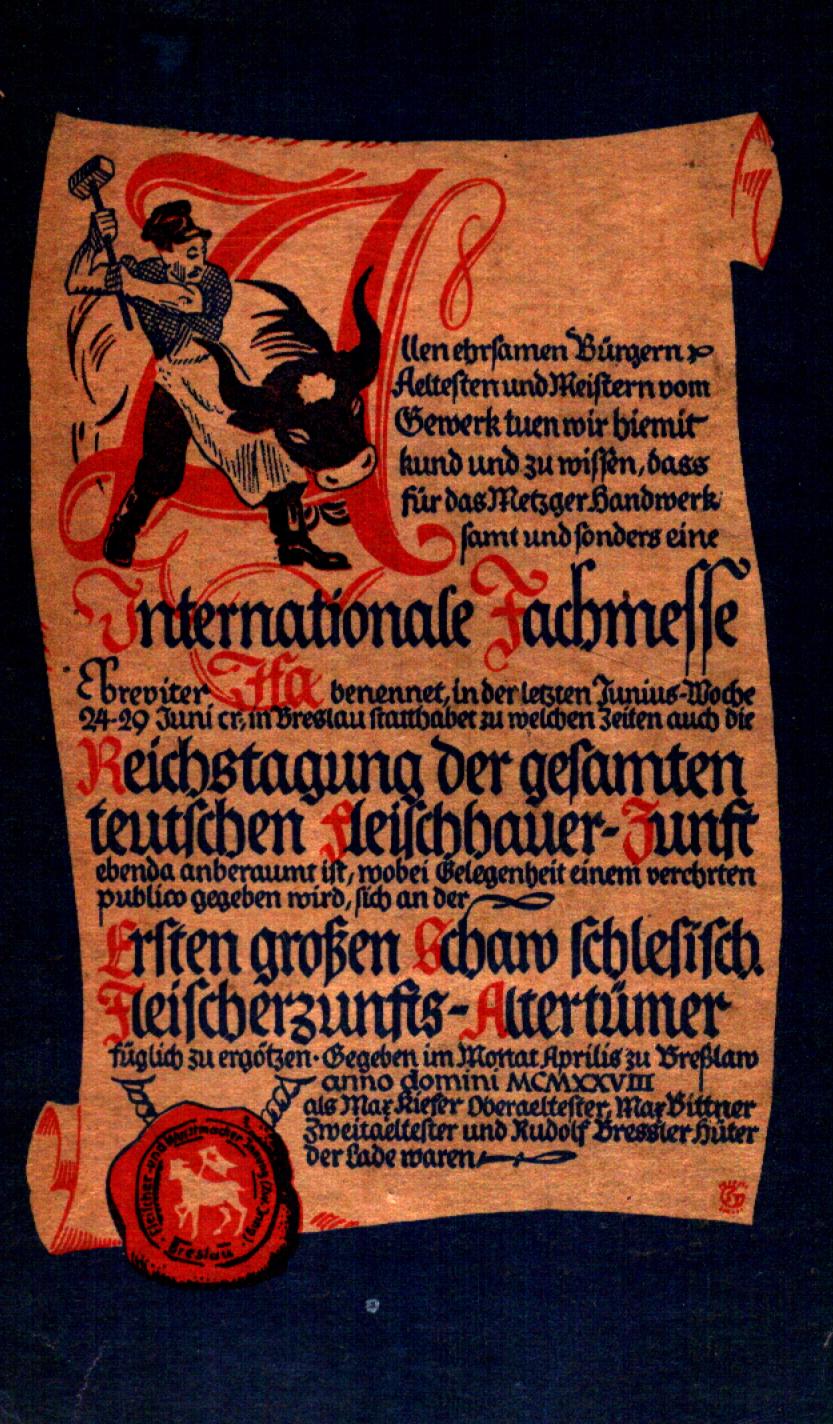 Allen ehrsamen Bürgern
Aeltesten und Meistern vom
Gewerk tuen wir hiemit
kund und zu wissen, dass
für das Metzger Handwerk
samt und sonders eine
Internationale Fachmesse
Ebreviter Ifa benennet, in der letzten Junius-Woche
24-29 Juni cr, in Breslau statthabet zu welchen Zeiten auch die
Reichstagung der gesamten
teutschen Fleischhauer-Zunft
ebenda anberaumt ist, wobei Gelegenheit einem verehrten
publico gegeben wird, sich an der
Ersten großen Schaw schlesisch.
Fleischerzunfts-Altertümer
füglich zu ergötzen· Gegeben im Monat Aprilis zu Breßlaw
anno domini MCMXXVIII
als Max Kiefer Oberaeltester, Max Bittner
Zweitaeltester und Rudolf Bressler Hüter
der Lade waren
Fleischer- und Wurstmacher-Innung
Breslau